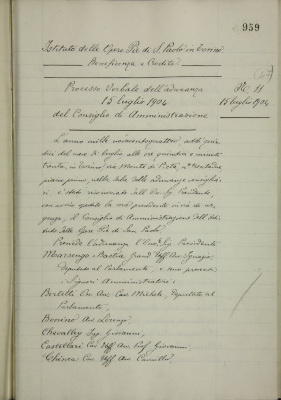 959
Istituto delle Opere Pie di S. Paolo in Torino
Beneficenza e Credito
Processo Verbale dell'adunanza
15 luglio 1904
del Consiglio di Amministrazione
N. 11
15 luglio 1904
L'anno mille novecentoquattro addì quin
dici del mese di luglio alle ore quindici e minuti
trenta, in Torino, via Monte di Pietà,
piano primo, nella sala delle adunanze consiglia
ri, è stato riconvocato dall'On. Sig. Presidente,
con avviso spedito
genza, il Consiglio di Amministrazione dell'Isti
tuto delle Opere Pie di San Paolo.
Presiede l'adunanza l'On. Sig. Presidente
Marsengo Bastia Grand. Uff. Avv. Ignazio,
Deputato al Parlamento, e sono presenti
i Signori Amministratori:
Bertetti On. Avv. Cav. Michele, Deputato al
Parlamento,
Bonino Avv. Lorenzo,
Chevalley Ing. Giovanni,
Castellari Cav. Uff. Avv. Prof. Giovanni,
Chinea Cav. Uff. Avv. Camillo,